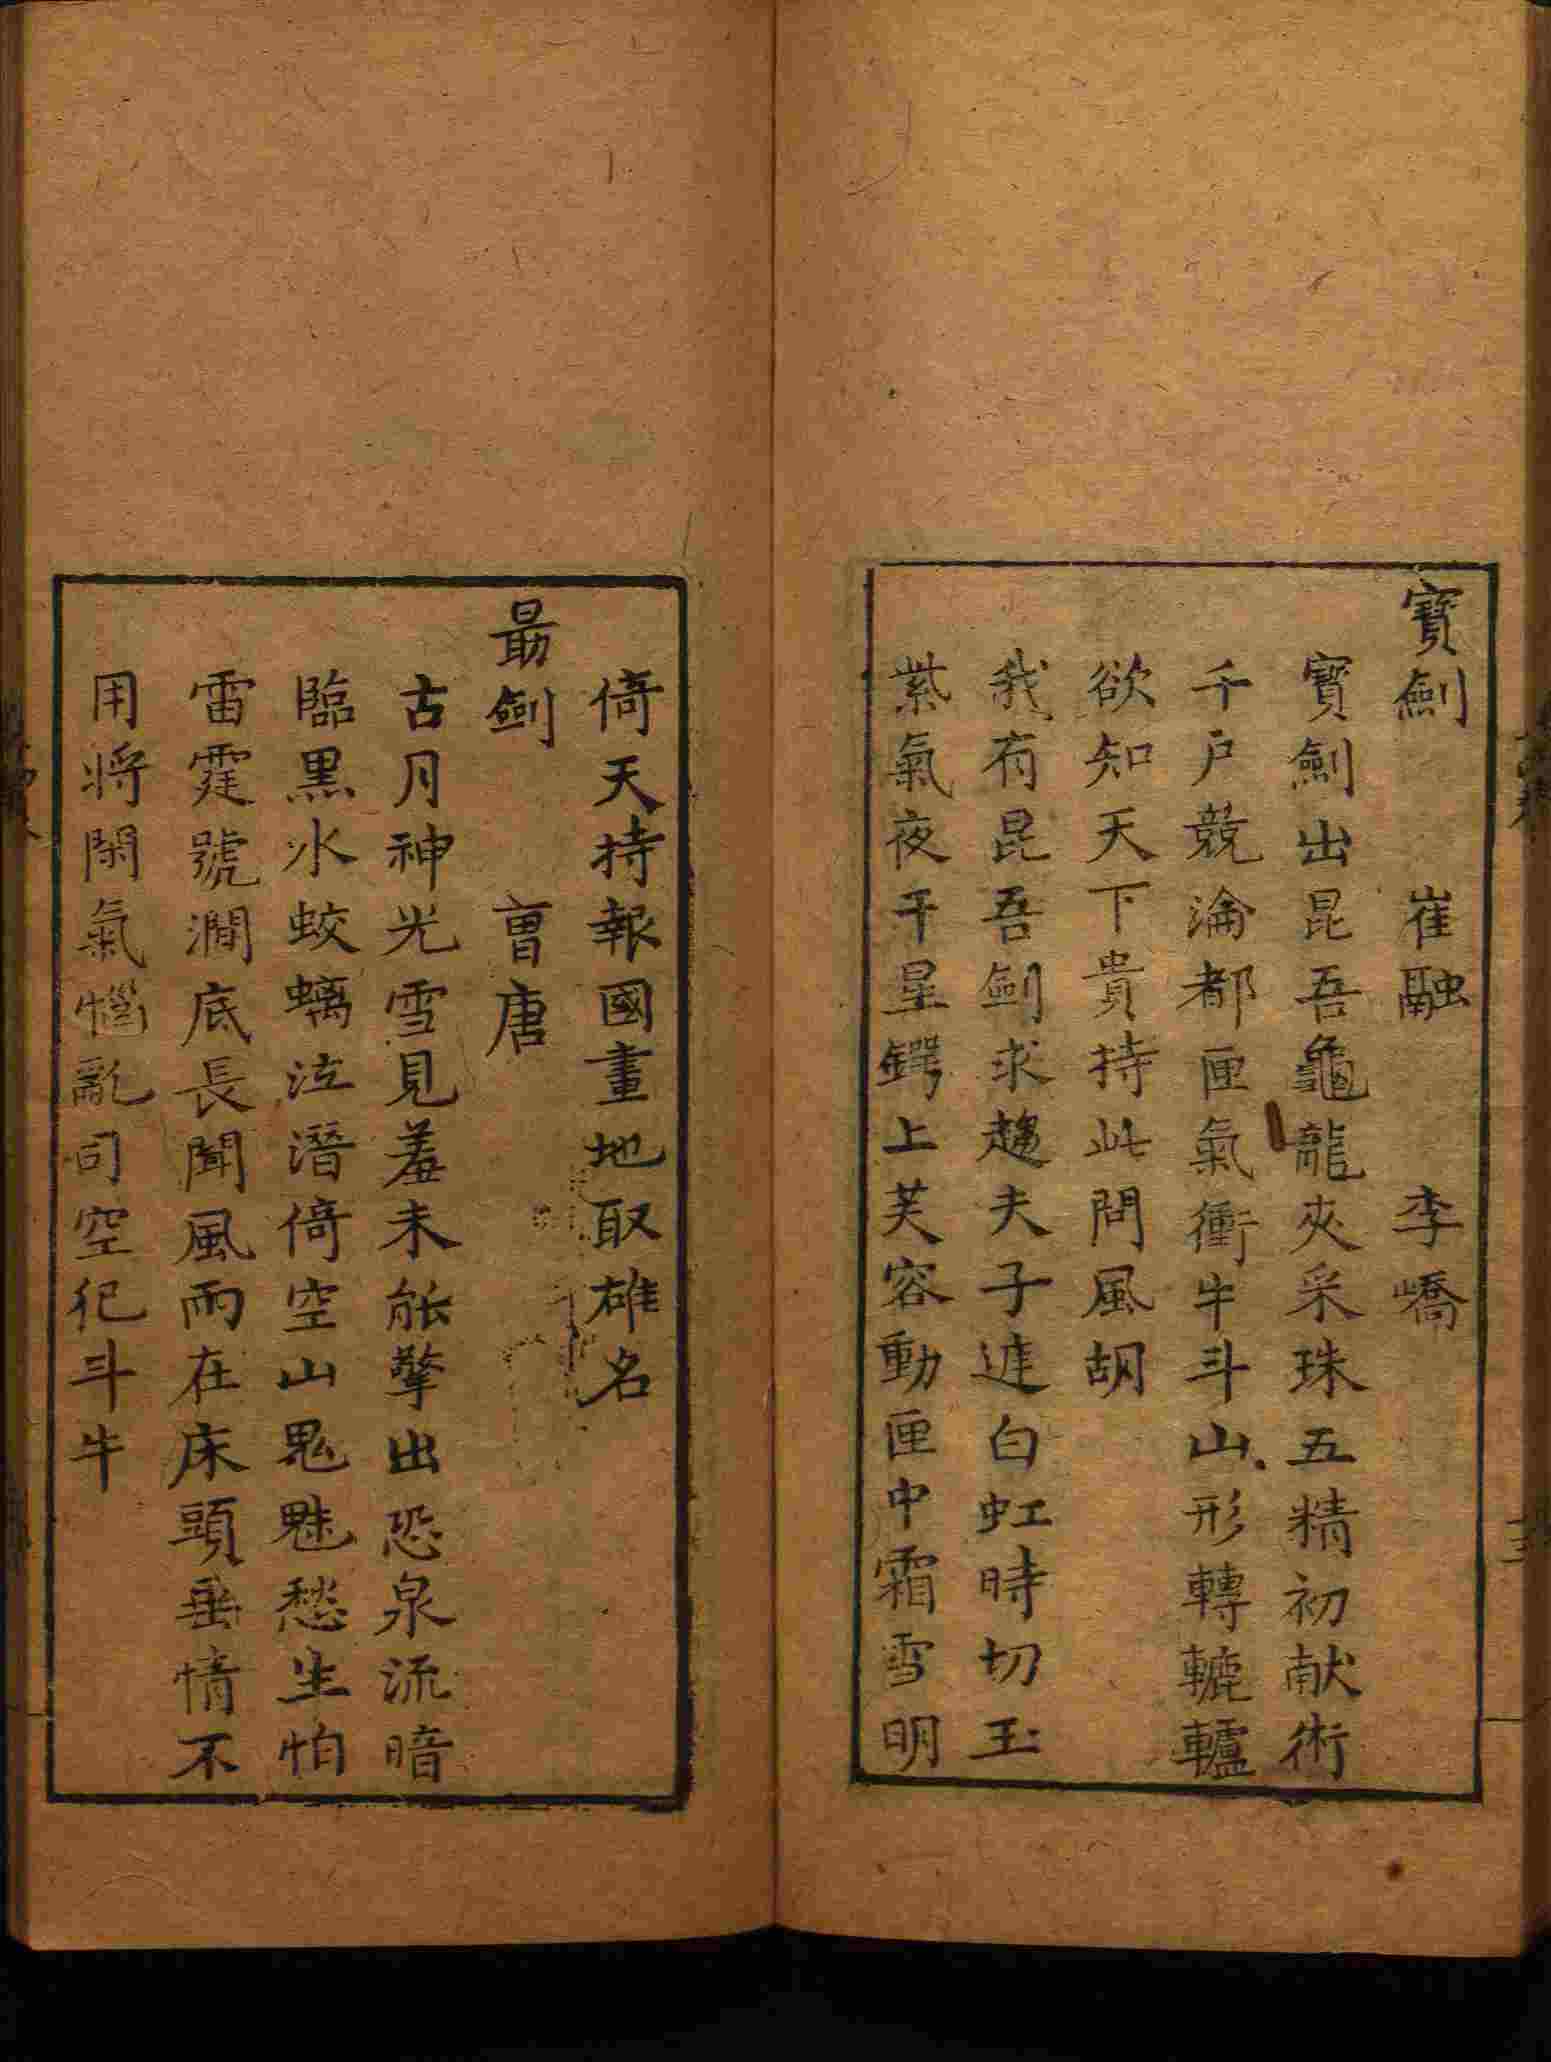 寶劍 崔融 李嶠
寶劍出昆吾龜龍夾采珠五精初献術
千户競淪都匣氣衝牛斗山形轉轆轤
欲知天下貴持此問風胡
我有昆吾劍求趨夫子庭白虹時切玉
紫氣夜干星鍔上芙容動匣中霜雪明
倚天持報國畫地取雄名
勗劍 曺唐
古月神光雪見羞未能擎出恐泉流暗
臨黒水蛟螭泣潛倚空山鬼魅愁生怕
雷霆號澗底長聞風雨在床頭垂情不
用将閑氣惱亂司空犯斗牛